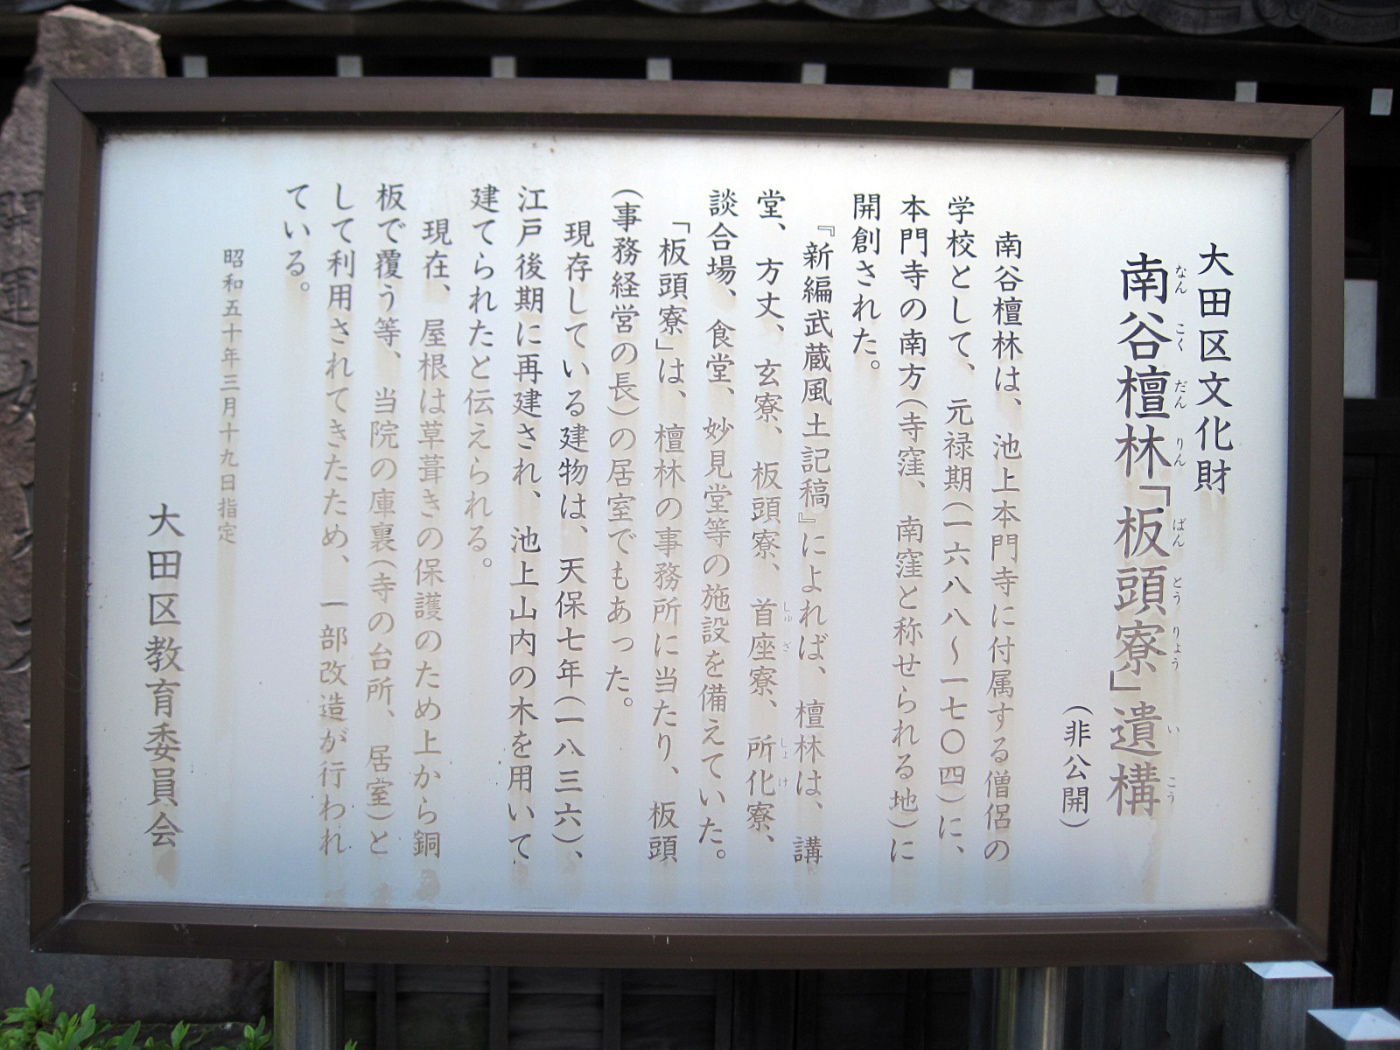 大田区文化財
南谷檀林「板頭寮」遺構
なん こく だん りん ばん とう りょう い こう
(非公開)
南谷檀林は、池上本門寺に付属する僧侶の
学校として、元禄期(一六八八～一七〇四)に、
本門寺の南方(寺窪、南窪と称せられる地)に
開創された。
『新編武蔵風土記稿』によれば、檀林は、講
堂、方丈、玄寮、板頭寮、首座寮、所化寮、
しゅ ざ しょ け
談合場、食堂、妙見堂等の施設を備えていた。
「板頭寮」は、檀林の事務所に当たり、板頭
(事務経営の長)の居室でもあった。
現存している建物は、天保七年(一八三六)、
江戸後期に再建され、池上山内の木を用いて
建てられたと伝えられる。
現在、屋根は草葺きの保護のため上から銅
板で覆う等、当院の庫裏(寺の台所、居室)と
して利用されてきたため、一部改造が行われ
ている。
昭和五十年三月十九日指定
大田区教育委員会